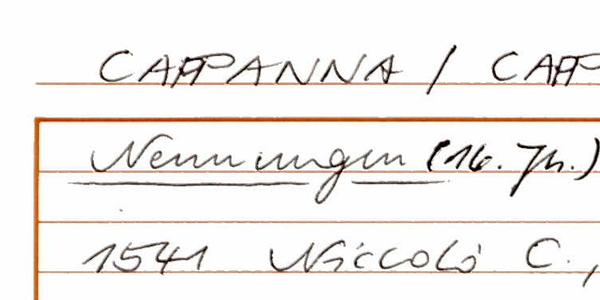 CAPPANNA / CAPP
Nennungen (16. Jh.)
1541 Niccolò C.,